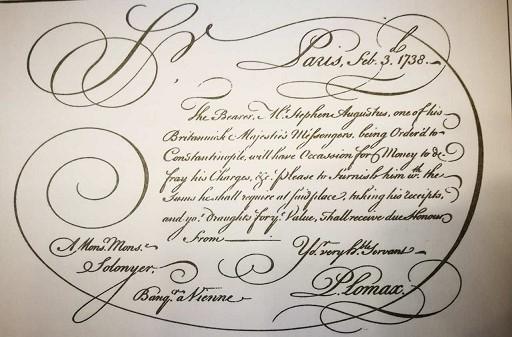 Sr
Paris, Feb. 3.d 1738.
The Bearer, Mr. Stephen Augustus, one of his
Britannick Majestie's Messengers, being Order'd to
Constantinople, will have Occassion for Money to de-
fray his Charges, &c. Please to furnish him wth. the
Sums he shall require at said place, taking his receipts,
and yor. draughts for ye. Value, Shall receive due Honour
From
Yor. very hble Servant
A Mons. Mons.
Solonyer.
Banqr. a Vienne
P. Lomax.